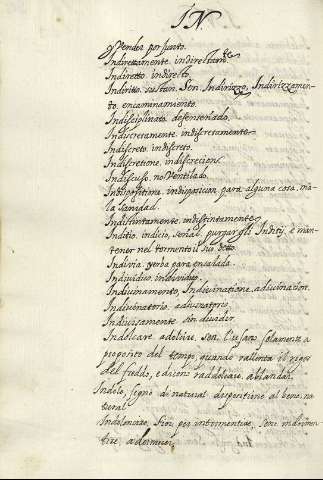 IN
Vender por junto.
Indirettamente. indirectamte
Indiretto. indirecto
Indiritto. sustan. Sen. Indirizzo, Indirizzamen-
to, encaminamiento.
Indisciplinato. desenseñado.
Indiscretamente. indiscretamente
Indiscreto. indiscreto.
Indiscretione. indiscrecion
Indiscusso. no ventilado.
Indispositione. indisposicion para alguna cosa, ma-
la sanidad.
Indistintamente. indistintamente
Inditio. indicio, señal. purgar gli Inditij, è man-
tener nel tormento il suo detto.
Indivia. yerba para ensalada.
Individuo. individuo.
Indivinamento, Indivinatione. adivinacion.
Indivinatorio. adivinatorio.
Indivisamente. sin dividir.
Indolcare. adolcir. sen. l'usano solamente a
proposito del tempo, quando rallenta il rigor
del freddo, e dicono raddolcare, ablandar.
Indole, segno di natural dispositione al bene. na-
tural
Indolenzire, Fior. per intormentire, Seni. indormen-
tire, adormecer